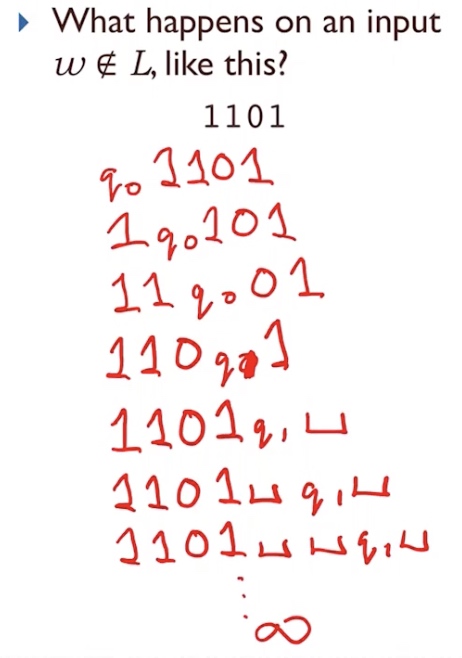 ▸ What happens on an input
w ∉ L, like this?
1101
q₀ 1101
1 q₀ 101
11 q₀ 01
110 q₁ 1
1101 q₁ ⊔
1101 ⊔ q₁ ⊔
1101 ⊔ ⊔ q₁ ⊔
⋮
∞